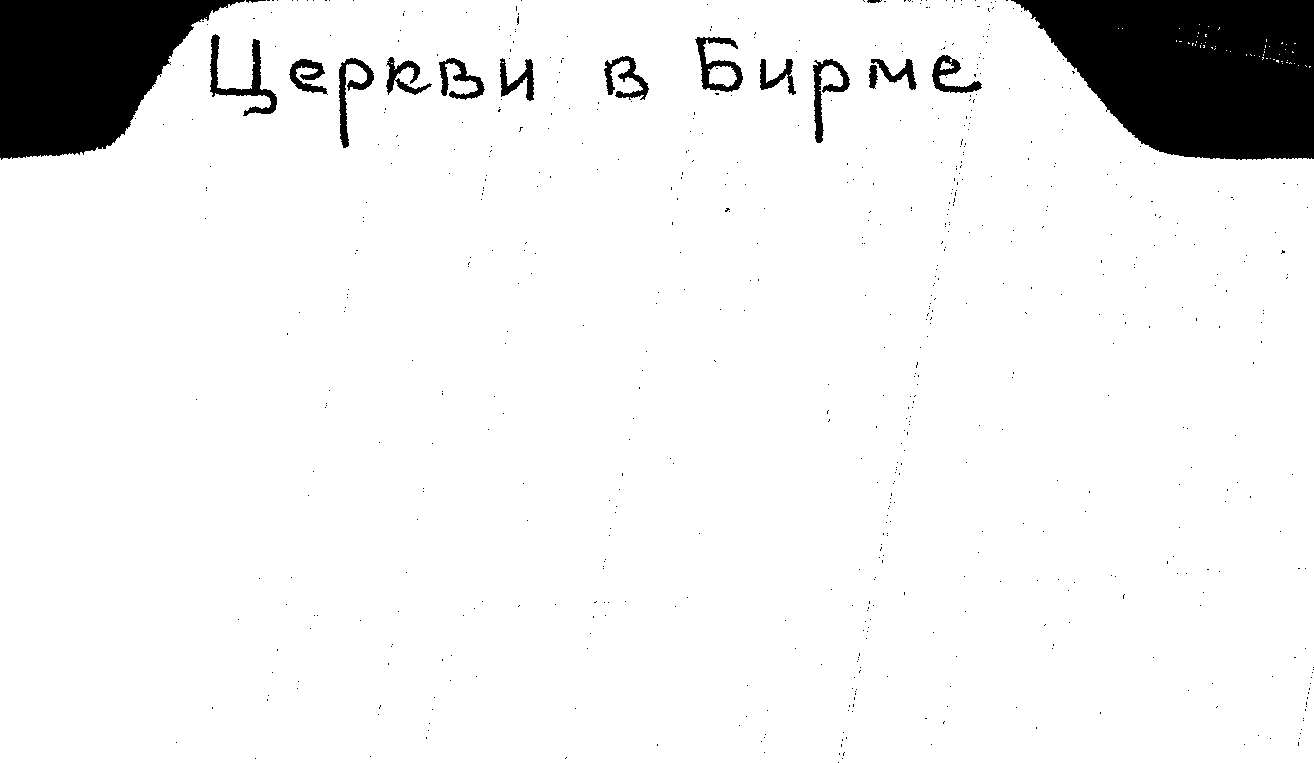 Церкви в Бирме